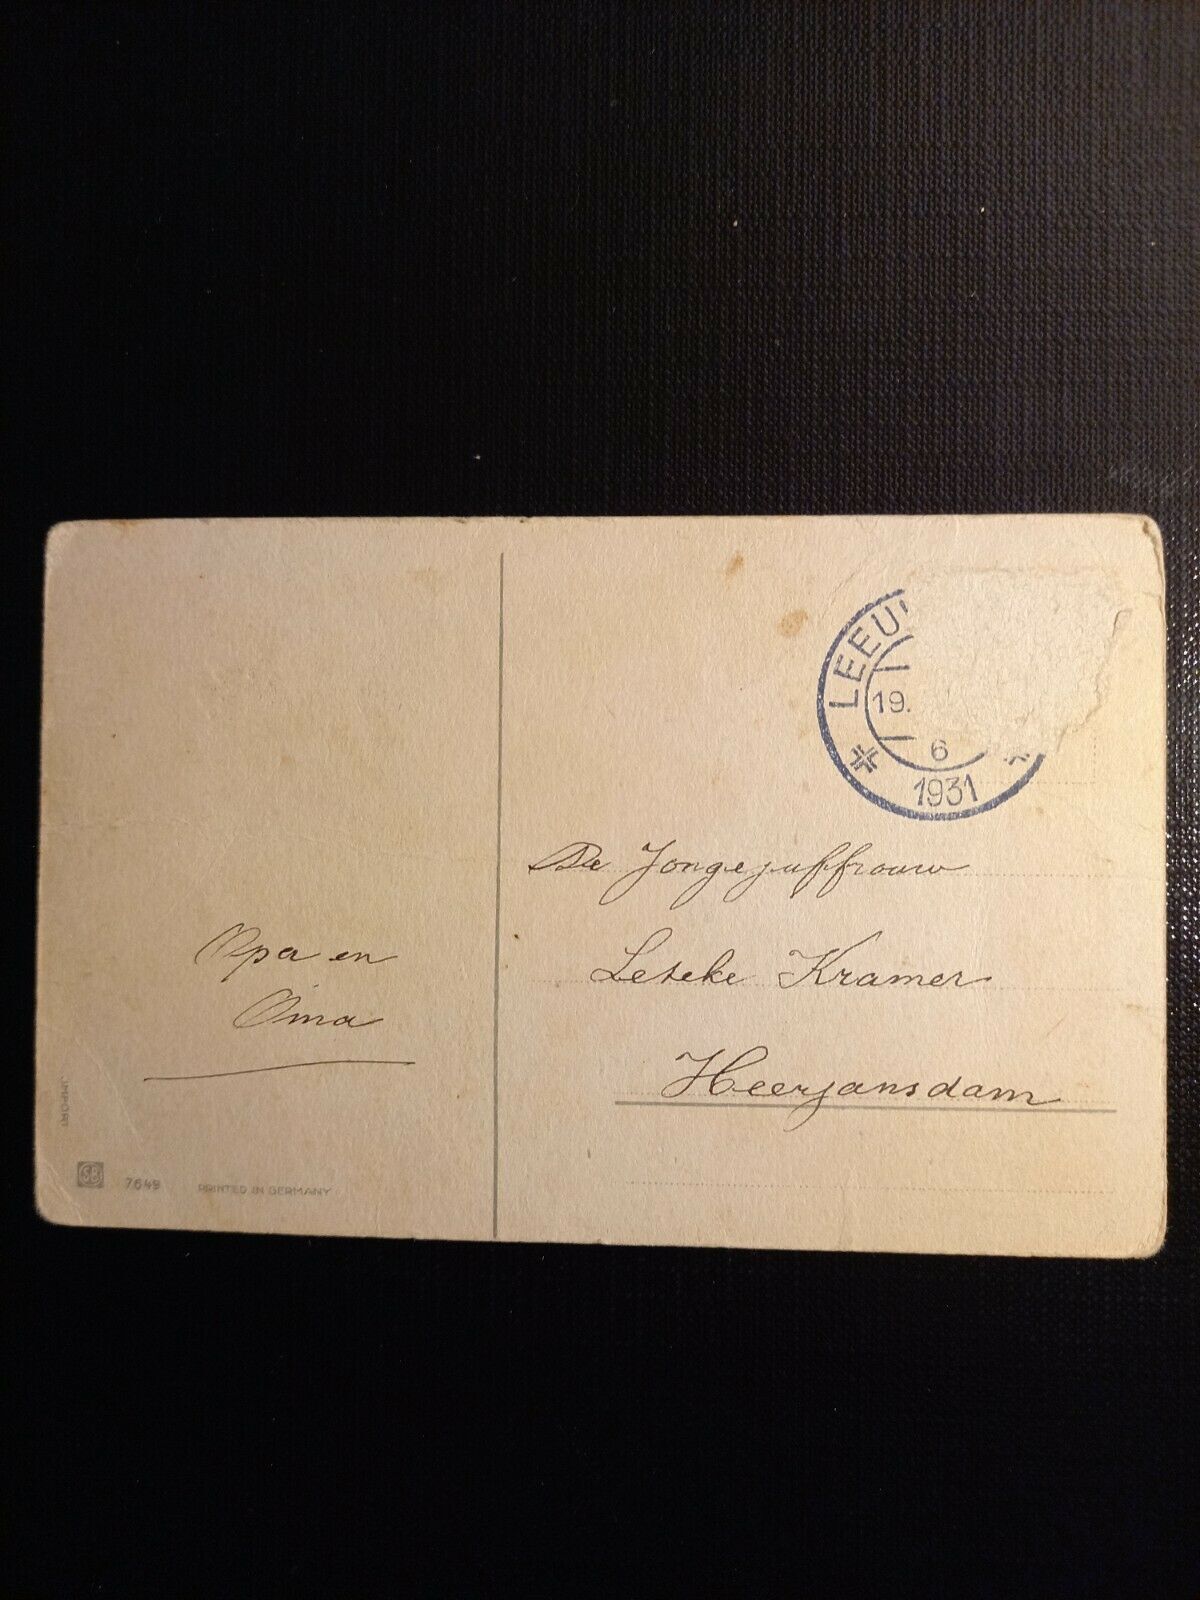 LEEU
19.
6
1931
De Jongejuffrouw
Leteke Kramer
Heerjansdam
Opa en
Oma
IMPORT
SB 7649 PRINTED IN GERMANY